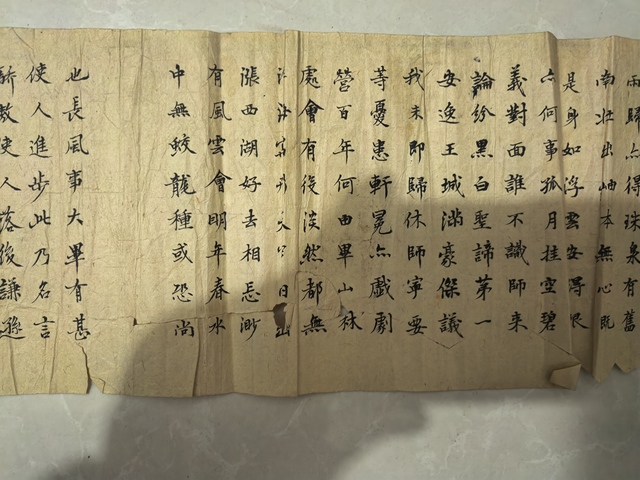 雨歸亦得珠泉有舊
南北出岫本無心既
是身如浮雲安得限
亦何事孤月挂空碧
義對面誰不識師來
論紛黑白聖諦第一
安逸王城滿豪傑議
我未即歸休師寧要
等憂患軒冕亦戲劇
營百年何由畢山林
處會有役淡然都無
日出
漲西湖好去相忘渺
有風雲會明年春水
中無蛟龍種或恐尚
也長風事大畢有甚
使人進步此乃名言
驕敖使人落後謙遜